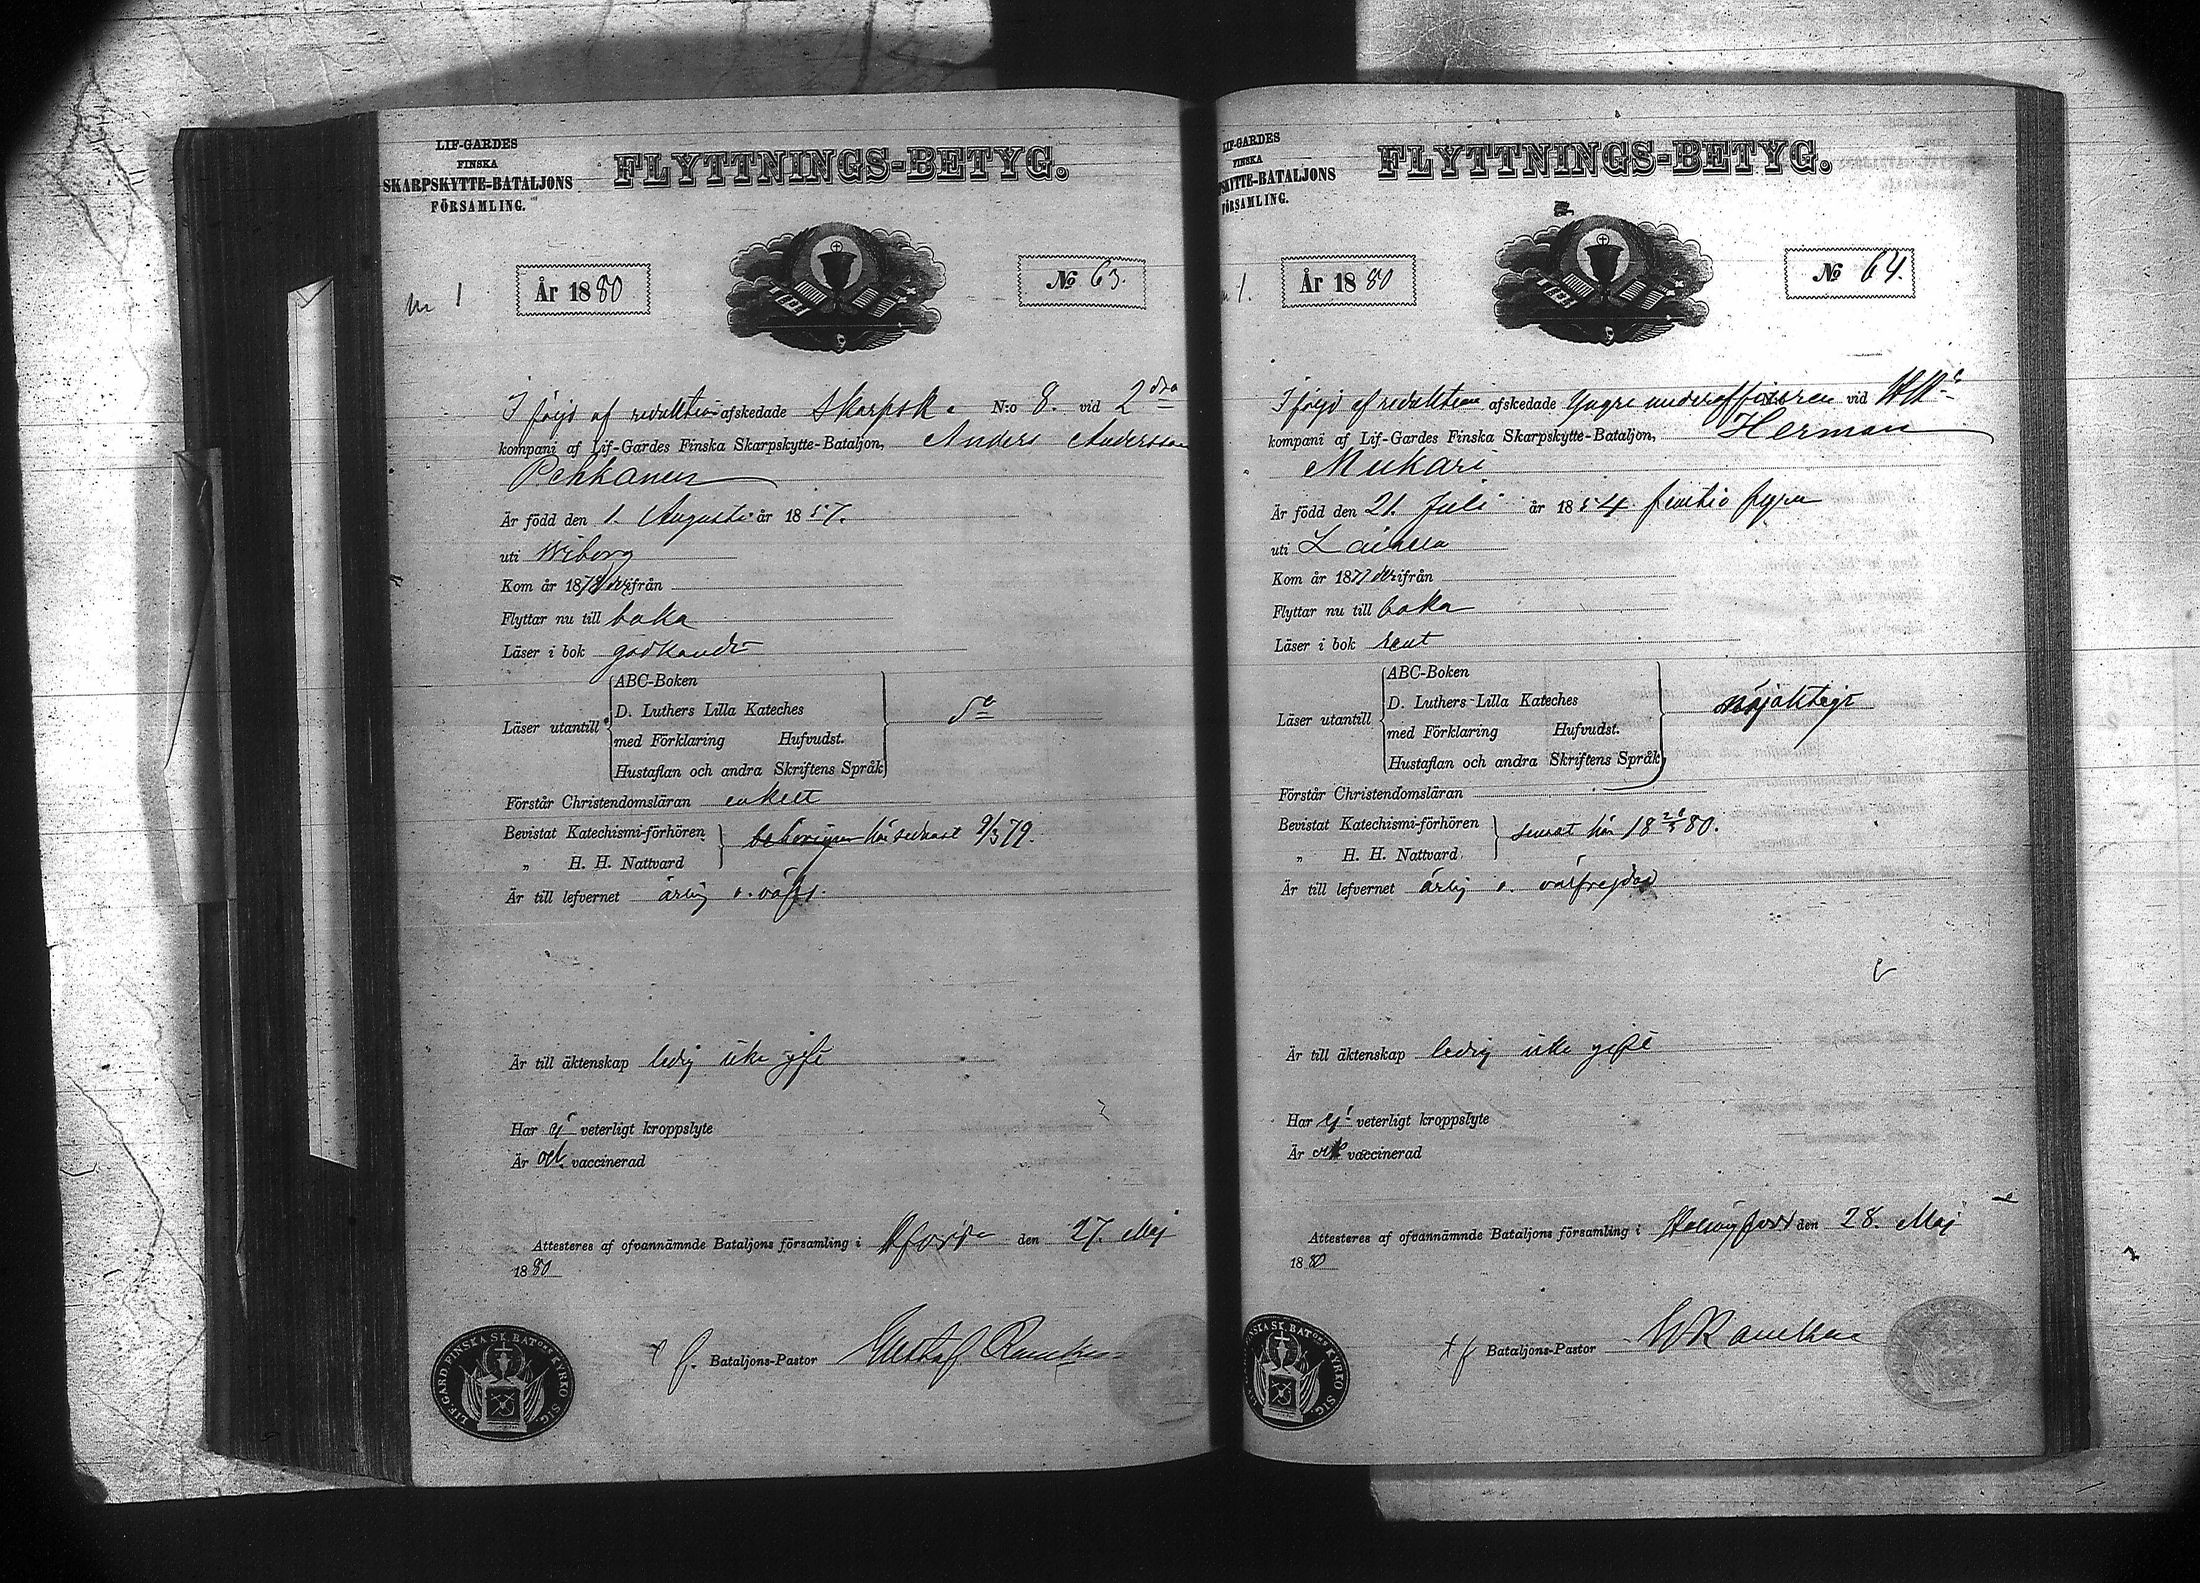 LIF-GARDES
FINSKA
SKARPSKYTTE-BATALJONS
FÖRSAMLING.
FLYTTNINGS-BETYG.
År 1880
No 63.
I följd af reduktion afskedade Skarpsk. N:o 8. vid 2dra
kompani af Lif-Gardes Finska Skarpskytte-Bataljon, Anders Andersson
Pekkanen
Är född den 1. Augusti år 1857.
uti Wiborg
Kom år 1878 derifrån
Flyttar nu till baka
Läser i bok godkändt
Läser utantill
ABC-Boken
D. Luthers Lilla Kateches
med Förklaring Hufvudst.
Hustaflan och andra Skriftens Språk
Do
Förstår Christendomsläran enkelt
Bevistat Katechismi-förhören
„ H. H. Nattvard
behörigen här senast 9/3 79.
Är till lefvernet ärlig o. välfr.
Är till äktenskap ledig icke gift
Har ej veterligt kroppslyte
Är och vaccinerad
Attesteres af ofvannämnde Bataljons församling i Hfors den 27. Maj
1880
Bataljons-Pastor Gustaf
LIF.GARD.FINSKA SK.BATONS KYRKO SIG.
LIF-GARDES
FINSKA
SKYTTE-BATALJONS
FÖRSAMLING.
FLYTTNINGS-BETYG.
År 1880
No 64.
I följd af reduktion afskedade Yngre underofficeren vid
kompani af Lif-Gardes Finska Skarpskytte-Bataljon, Herman
Mukari
Är född den 21. Juli år 1854 femtio fyra
uti Laihela
Kom år 1877 derifrån
Flyttar nu till baka
Läser i bok rent
Läser utantill
ABC-Boken
D. Luthers Lilla Kateches
med Förklaring Hufvudst.
Hustaflan och andra Skriftens Språk
nöjaktigt
Förstår Christendomsläran
Bevistat Katechismi-förhören
„ H. H. Nattvard
senast här 80.
Är till lefvernet ärlig o. välfrejdad
Är till äktenskap ledig icke gift
Har ej veterligt kroppslyte
Är vaccinerad
Attesteres af ofvannämnde Bataljons församling i Helsingfors den 28. Maj
1880
Bataljons-Pastor
FINSKA SK.BATONS KYRKO SIG.